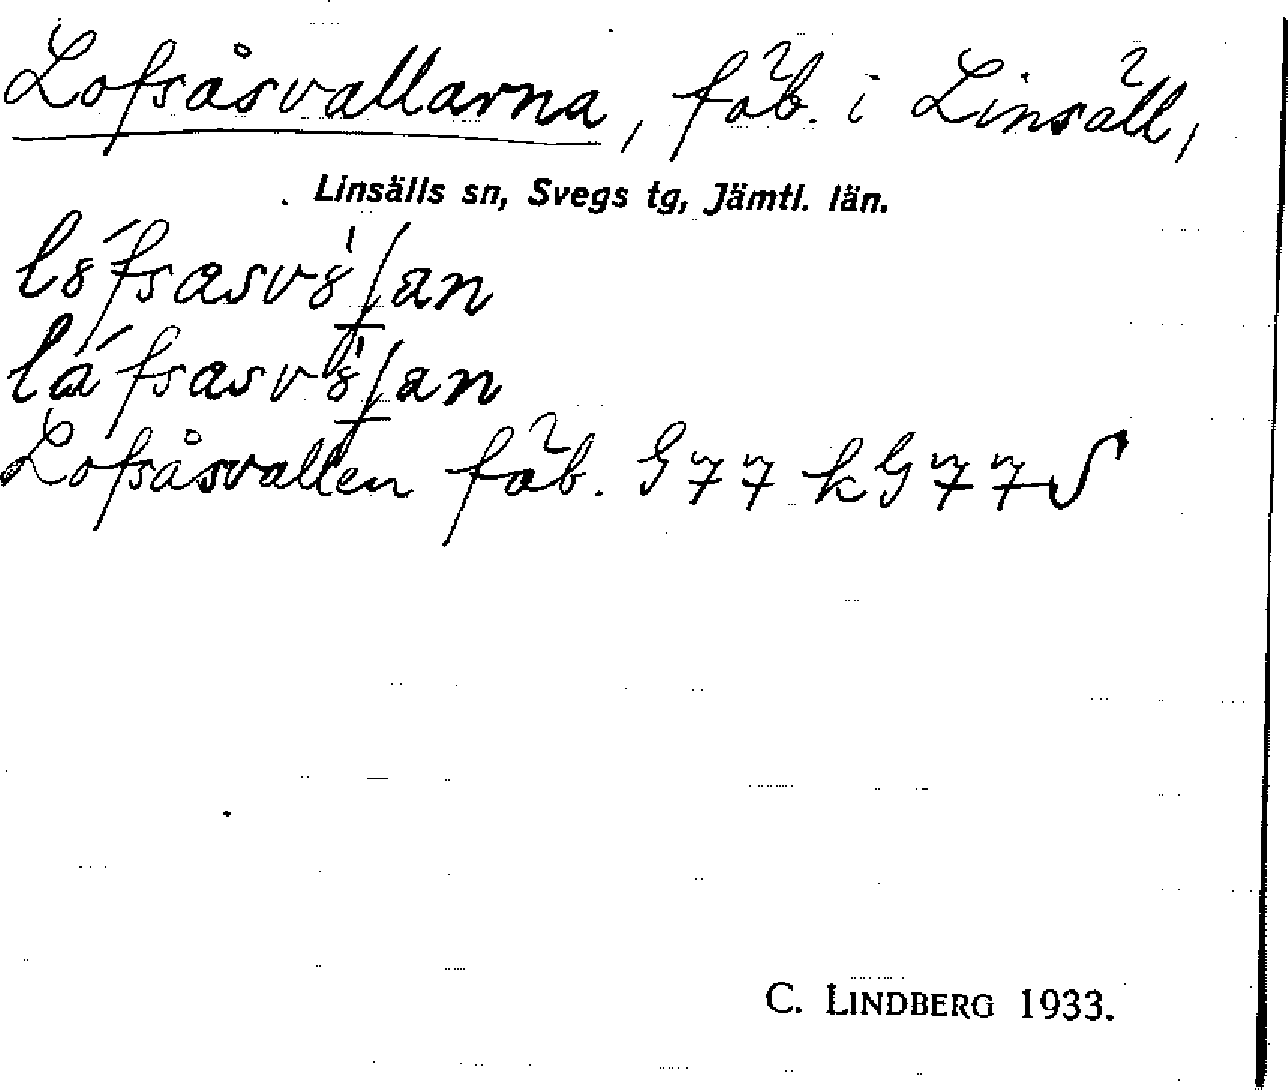 Lofsåsvallarna, fäb. i Linsäll,
Linsälls sn, Svegs tg, Jämtl. län.
Lofsåsvallen fäb. G77 kG77S
C. LINDBERG 1933.